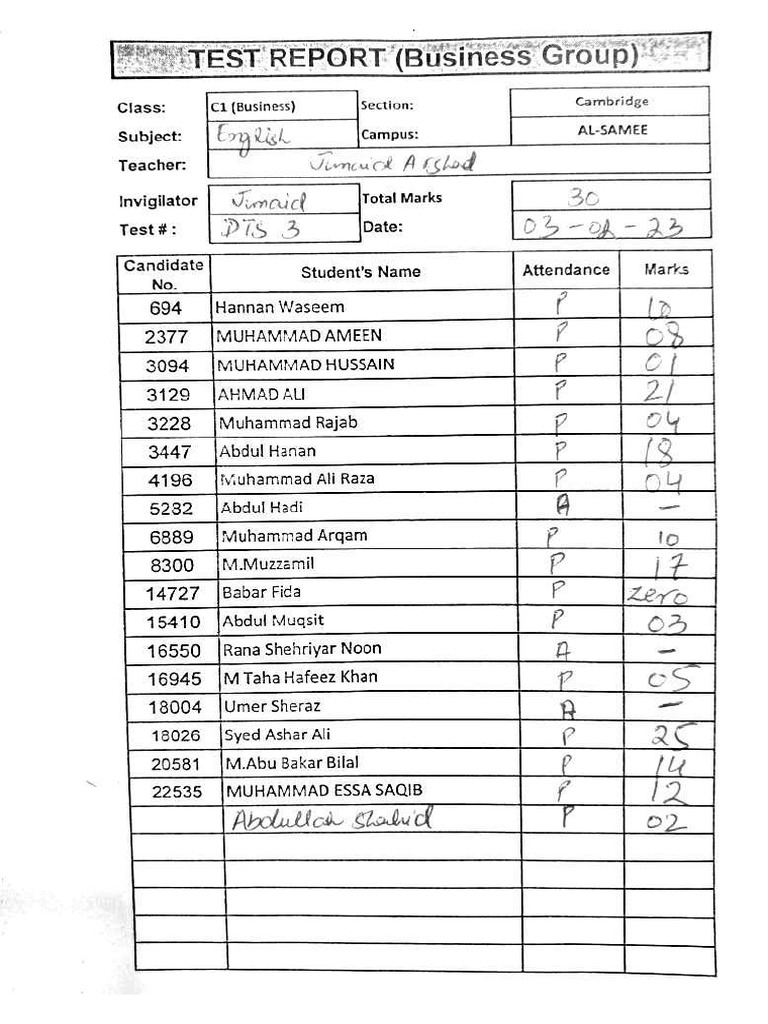 TEST REPORT (Business Group)
Class: C1 (Business) Section: Cambridge
Subject: English Campus: AL-SAMEE
Teacher: Junaid Arshad
Invigilator Junaid Total Marks 30
Test # : DTS 3 Date: 03-02-23
Candidate No. Student's Name Attendance Marks
694 Hannan Waseem P 10
2377 MUHAMMAD AMEEN P 08
3094 MUHAMMAD HUSSAIN P 01
3129 AHMAD ALI P 21
3228 Muhammad Rajab P 04
3447 Abdul Hanan P 18
4196 Muhammad Ali Raza P 04
5232 Abdul Hadi A –
6889 Muhammad Arqam P 10
8300 M.Muzzamil P 17
14727 Babar Fida P zero
15410 Abdul Muqsit P 03
16550 Rana Shehriyar Noon A –
16945 M Taha Hafeez Khan P 05
18004 Umer Sheraz A –
18026 Syed Ashar Ali P 25
20581 M.Abu Bakar Bilal P 14
22535 MUHAMMAD ESSA SAQIB P 12
Abdullah Shahid P 02